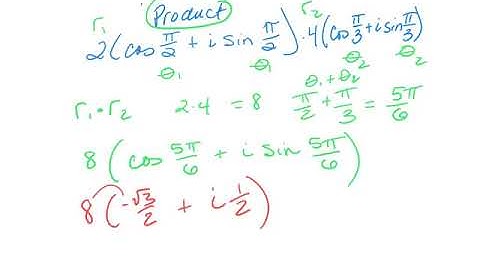 Product
r₁ r₂
2(cos π/2 + i sin π/2)·4(cos π/3 + i sin π/3)
θ₁ θ₁ θ₂ θ₂
θ₁ + θ₂
r₁ · r₂ 2·4 = 8 π/2 + π/3 = 5π/6
8(cos 5π/6 + i sin 5π/6)
8(-√3/2 + i 1/2)